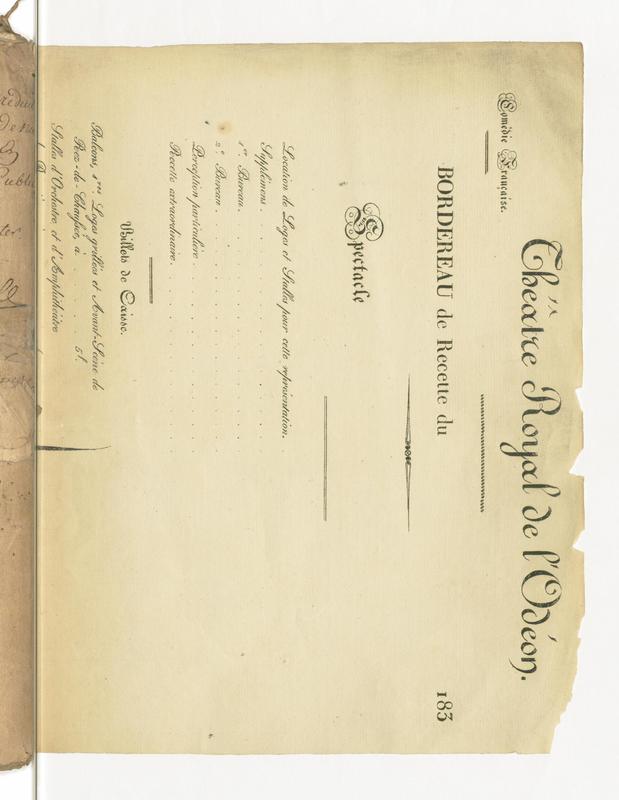 Théâtre Royal de l'Odéon.
Comédie Française.
BORDEREAU de Recette du 183
Spectacle
Location de Loges et Stalles pour cette représentation.
Supplémens.
1er Bureau.
2e Bureau.
Perception particulière
Recette extraordinaire.
Billets de Caisse.
Balcons, 1res Loges grillées et Avant-Scène de
Rez-de-Chaussée, à 5f.
Stalles d'Orchestre et d'Amphithéâtre